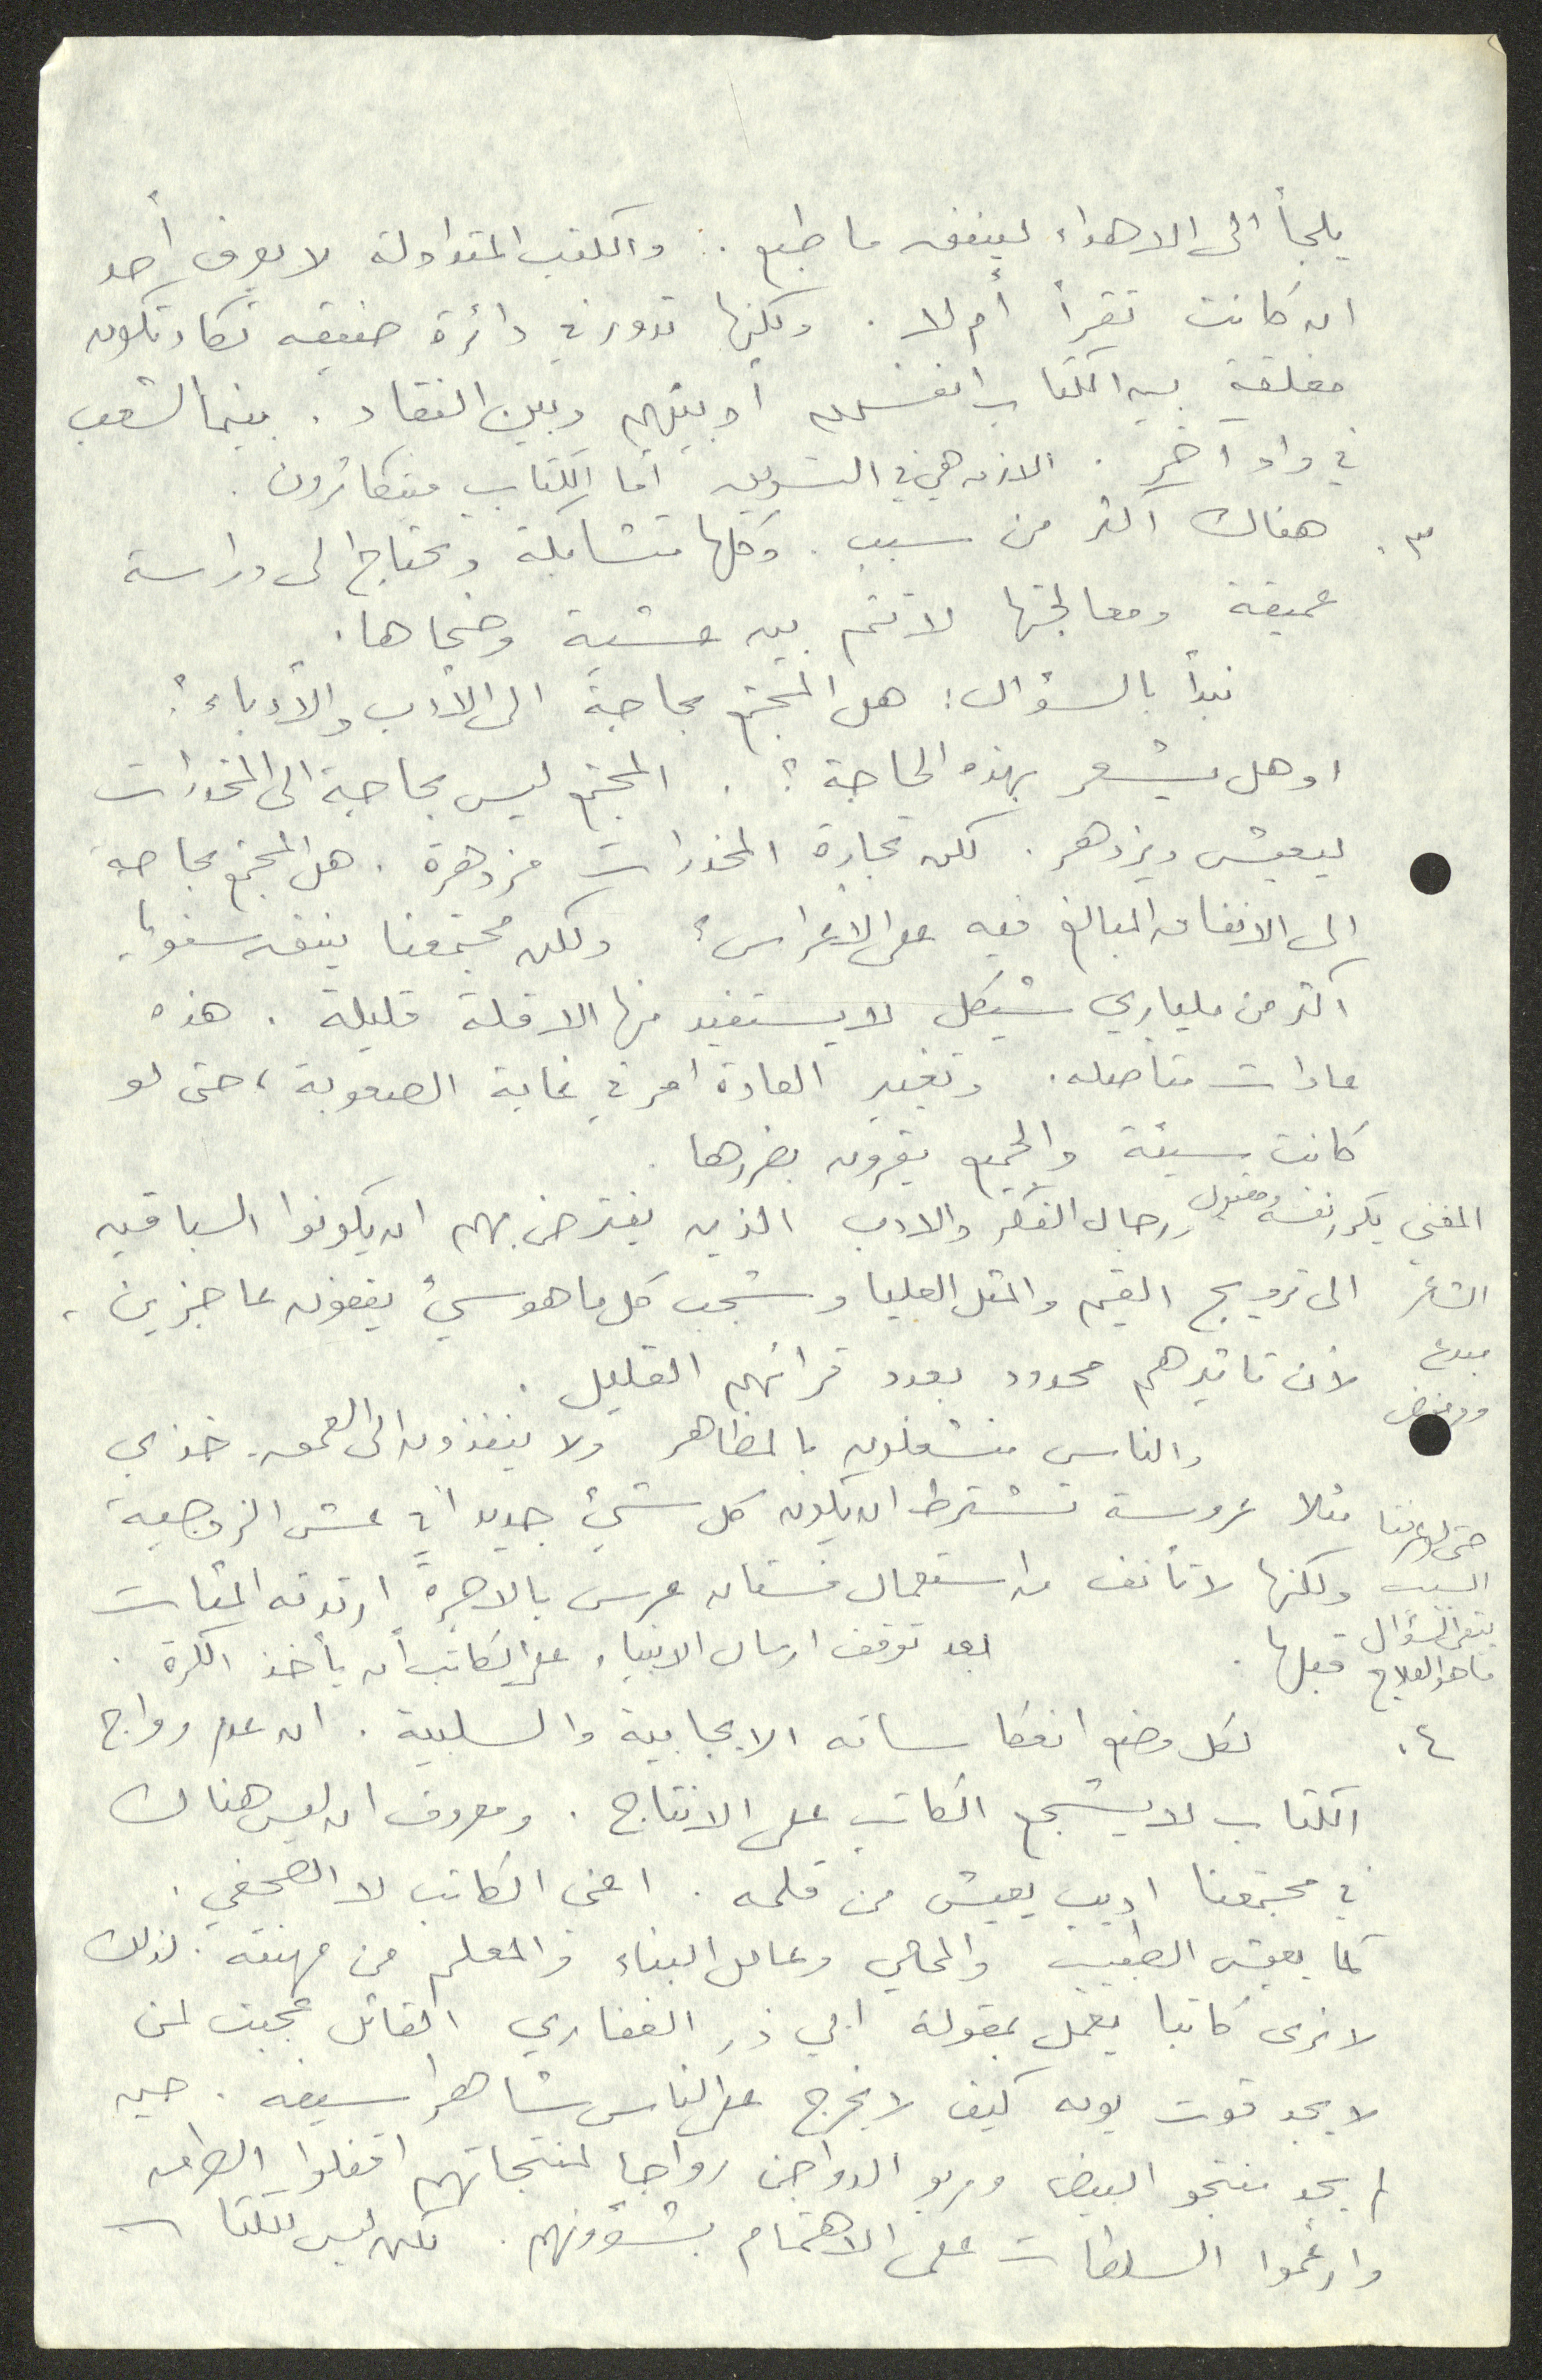 يلجأ الى الاهداء لينفق ما طبع . والكتب المتداولة لا يعرف أحد
ان كانت تقرأ أم لا . ولكنها تدور في دائرة ضيقه تكاد تكون
مغلقة بين الكتاب انفسهم أو بينهم وبين النقاد . بينما الشعب
في واد آخر . الازمه هي في التسويق أما الكتاب فيتكاثرون .
٣. هناك اكثر من سبب . وكلها متشابكة وتحتاج الى دراسة
عميقة ومعالجتها لا تتم بين عشية وضحاها .
نبدأ بالسؤال : هل المجتمع بحاجة الى الأدب والأدباء ؟
او هل يشعر بهذه الحاجة ؟ . المجتمع ليس بحاجة الى المخدرات
ليعيش ويزدهر . لكن تجارة المخدرات مزدهرة . هل المجتمع بحاجة
الى الانفاق المبالغ فيه على الاعراس ؟ ولكن مجتمعنا ينفق سنويا
اكثر من ملياري شيكل لا يستفيد منها الا قلة قليلة . هذه
عادات متأصله . وتغيير العادة امر في غاية الصعوبة ، حتى لو
كانت سيئة والجميع يقرون بضررها .
المغني يكرر نفسه ومقبول
ورجال الفكر والادب الذين يفترض بهم ان يكونوا السباقين
الشاعر
الى ترويج القيم والمثل العليا وشجب كل ما هو سيئ يقفون عاجزين ،
مبدع
لأن تاثيرهم محدود بعدد قرائهم القليل .
ومرفوض
والناس منشغلون بالمظاهر ولا ينفذون الى العمق . خذي
مثلا عروسة تشترط ان يكون كل شيئ جديدا في عش الزوجية
حتى لو عرفنا
ولكنها لا تأنف من استعمال فستان عرس بالاجرة ارتدته المئات
السبب
قبلها .
يبقى السؤال
ما هو العلاج
بعد توقف ارسال الانبياء على الكاتب أن يأخذ الكرة .
٤. لكل وضع انعكاساته الايجابية والسلبية . ان عدم رواج
الكتاب لا يشجع الكاتب على الانتاج . ومعروف ان ليس هناك
في مجتمعنا اديب يعيش من قلمه . اعني الكاتب لا الصحفي .
كما يعيش الطبيب والمحامي وعامل البناء والمعلم من مهنته . لذلك
لا نرى كاتبا يعمل بمقولة ابي ذر الغفاري القائل عجبت لمن
لا يجد قوت يومه كيف لا يخرج على الناس شاهرا سيفه . حين
لم يجد منتجو البيض ومربو الدواجن رواجا لمنتجاتهم اقفلوا الطرق
وارغموا السلطات على الاهتمام بشؤونهم . لكن ليس للكتاب